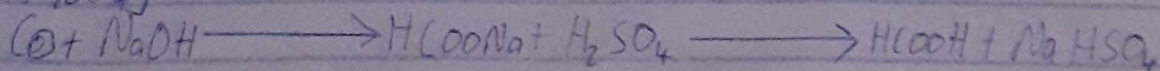 CO + NaOH ⟶ HCOONa + H₂SO₄ ⟶ HCOOH + NaHSO₄